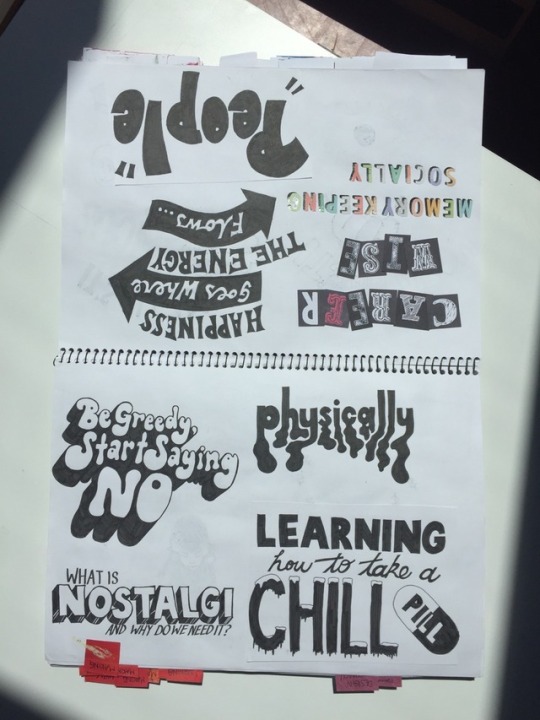 CAREER
WISE
MEMORY KEEPING
SOCIALLY
HAPPINESS
goes where
THE ENERGY
Flows...
"People"
Be Greedy,
Start Saying
NO
physically
WHAT IS
NOSTALGI
AND WHY DO WE NEED IT?
LEARNING
how to take a
CHILL
PILL